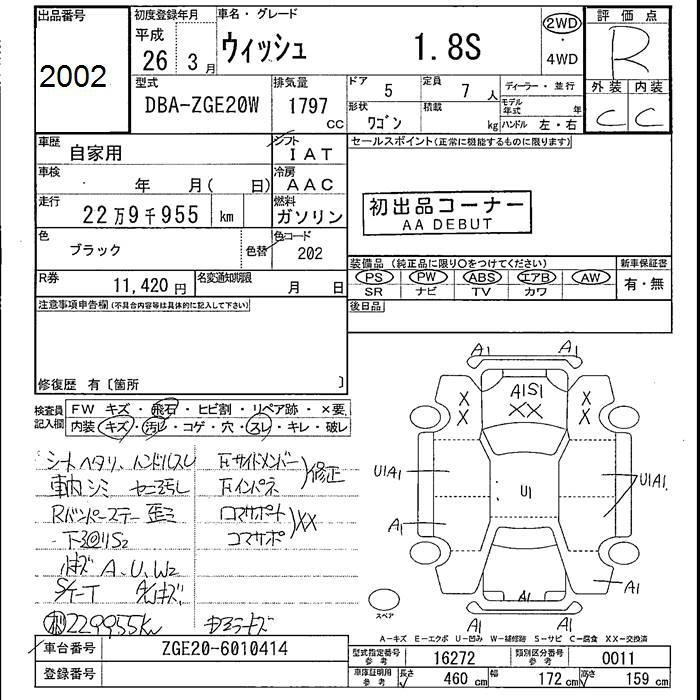 出品番号
2002
初度登録年月
平成
26 3月
車名・グレード
ウィッシュ 1.8S
2WD
・
4WD
評価点
R
外装 内装
C C
型式
DBA-ZGE20W
排気量
1797
CC
ドア 5
定員 7 人
形状 ワゴン
積載 kg
ディーラー・並行
モデル年式 年
ハンドル 左・右
車歴 自家用
シフト
IAT
車検 年 月( 日)
冷房
AAC
走行 22万9千955 km
燃料
ガソリン
色 ブラック
色替
色コード
202
R券 11,420円
名変通知期限 月 日
注意事項申告欄(不具合内容等は具体的に記入して下さい)
修復歴 有〔箇所 〕
セールスポイント(正常に機能するものに限ります)
初出品コーナー
AA DEBUT
装備品(純正品に限り○をつけてください)
PS PW ABS エアB AW
SR ナビ TV カワ
新車保証書
有・無
後日品
検査員記入欄
FW キズ・飛石・ヒビ割・リペア跡・×要
内装 キズ・汚レ・コゲ・穴・スレ・キレ・破レ
シートヘタリ、ハンドルスレ
車内シミ
Rバンパーステー 歪ミ
下回りS2
キズ A、U、W2
229955km
左サイドメンバー
左インパネ
修正
コアサポート
コアサポ
XX
A1 A1
A1S1
XX
X X
X X
U1A1
U1
U1A1
A1
A1
A1
A1 A1
スペア
A-キズ E-エクボ U-凹み W-補修跡 S-サビ C-腐食 XX-交換済
車台番号 ZGE20-6010414
登録番号
型式指定番号
参考
16272
類別区分番号
参考
0011
車庫証明用
参考
長さ 460 cm
幅 172 cm
高さ 159 cm